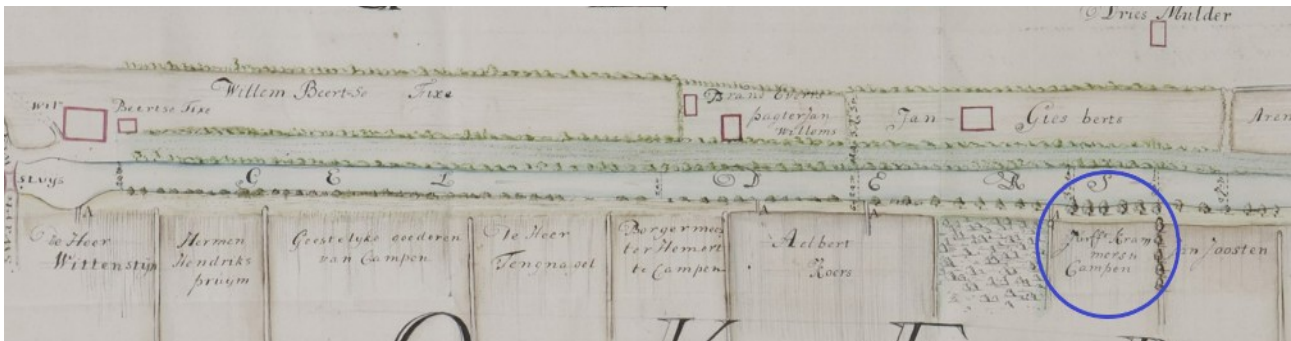 Dries Mulder
Willem Beertse Fixe
Wil
Beertse Fixe
Brand Everts
pagter Jan
Willems
Jan Gies berts
Aren
SLUYS
C E L D E R S
A
A
A
de Heer
Wittenstyn
Hermen
Hendriks
pruym
Geestelyke goederen
van Campen
de Heer
Tengnagel
Borgermees
ter Hemert
te Campen
Aelbert
Roers
Juffr. Cram
mers
Campen
Jan Joosten
O K E